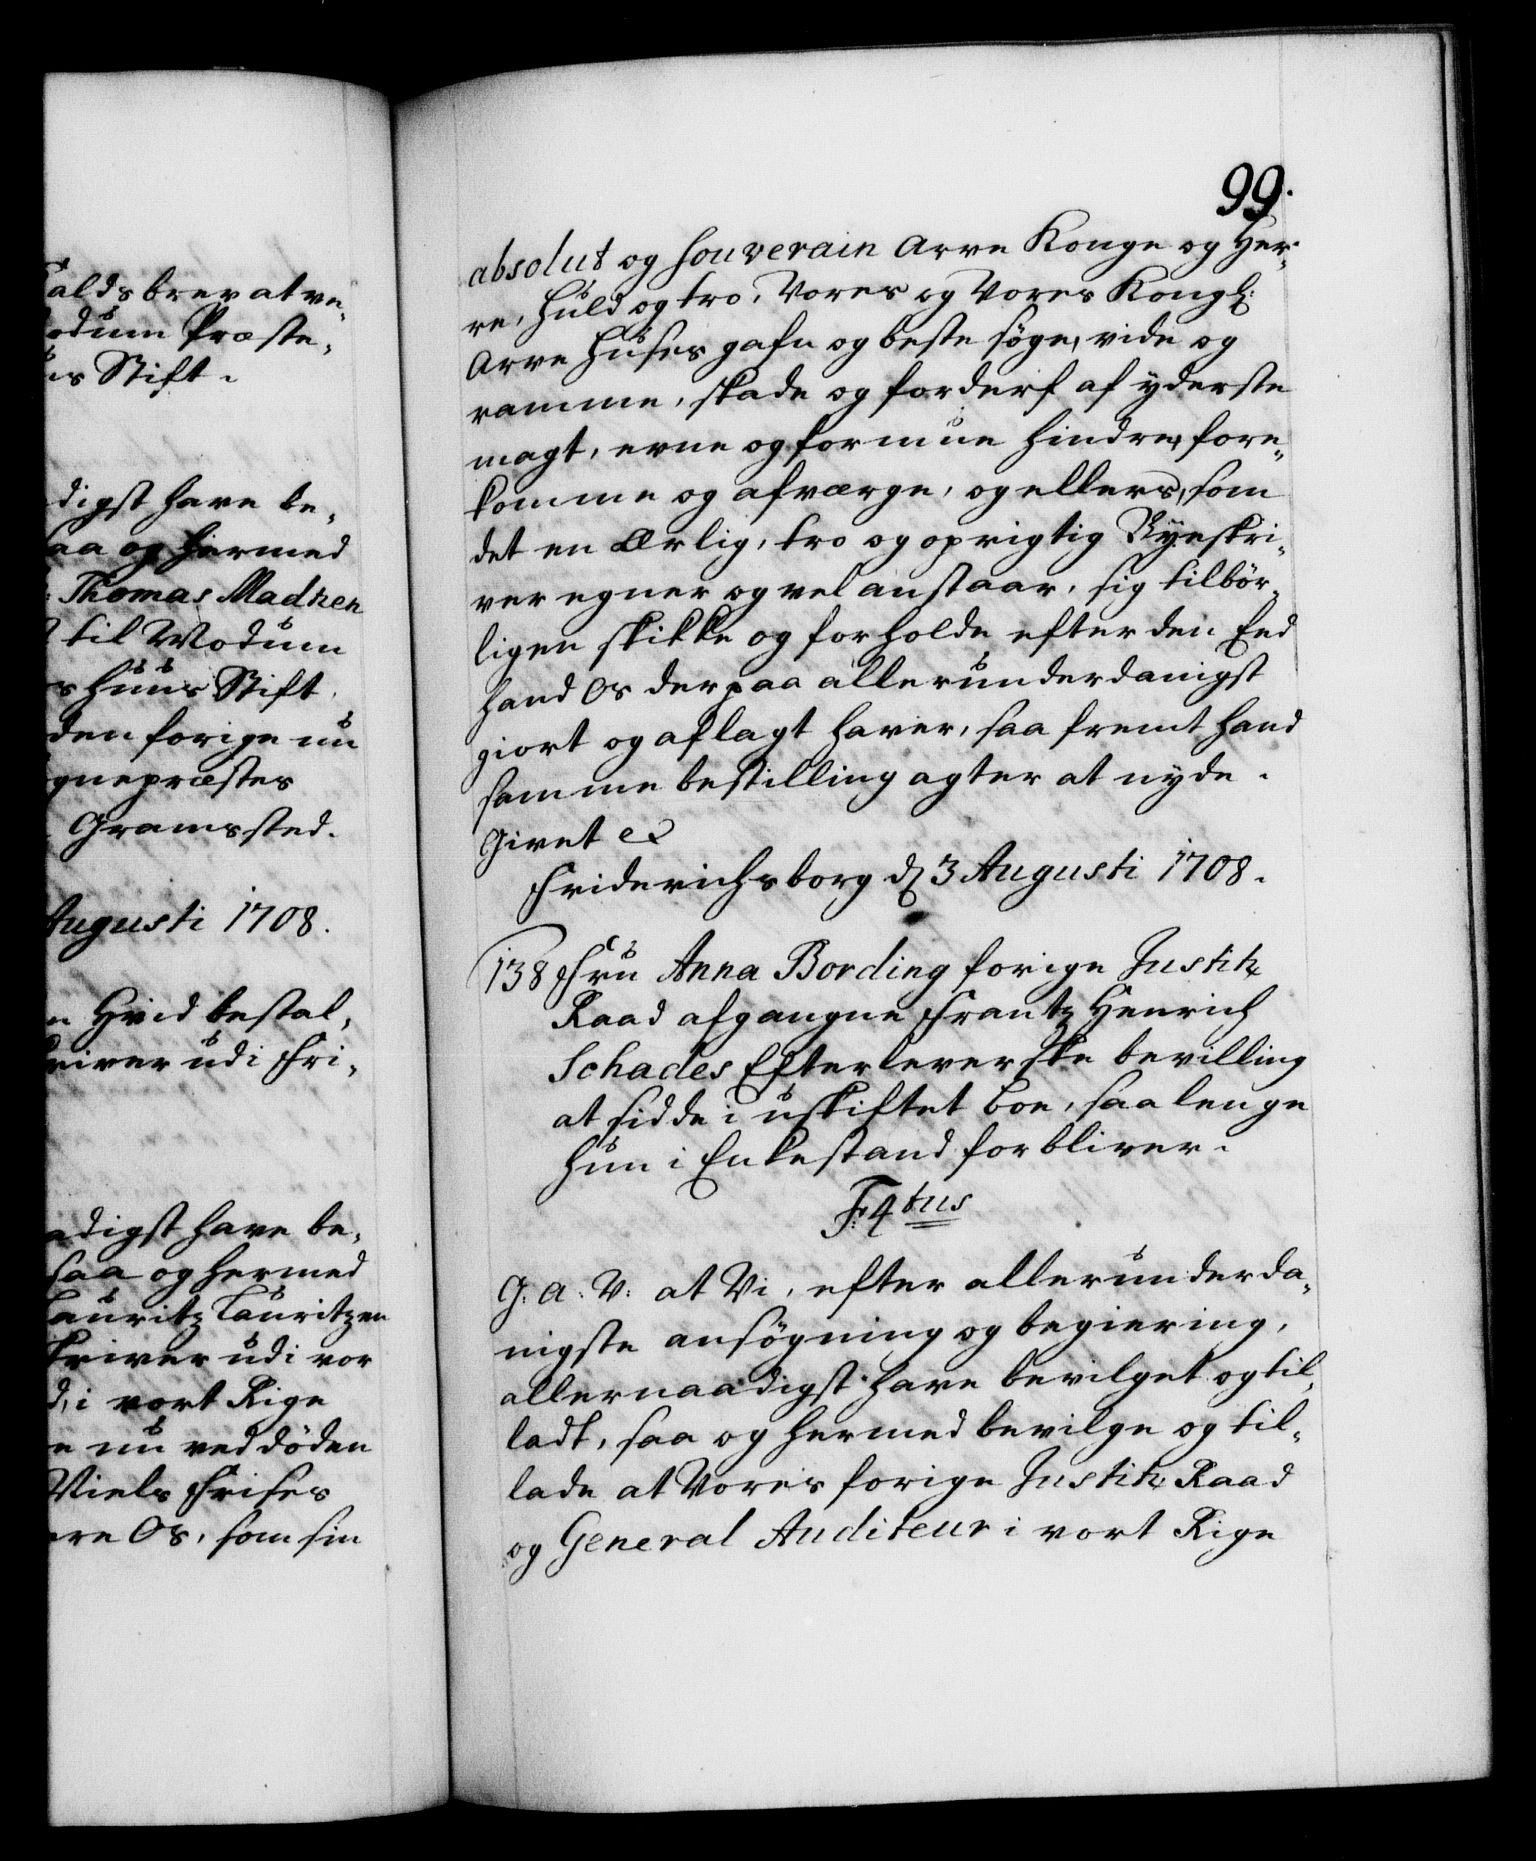 alds brev at ve-
odum Præste-
us Stift.
digst have be-
saa og hermed
Thomas Madzen
til Modum
s huus Stift
den forige nu
gnepræstes
Gramssted.
Augusti 1708.
n Hvid bestal-
river udi Fri-
adigst have be-
saa og hermed
Lauritz Lauritzen
skriver udi vor
d, i vort Rige
e nu ved döden
Niels Frises
ere Os, som sin
99.
absolut og souverain Arve Konge og Her-
re, huld og tro, Vores og Vores Kongl:
Arve Huses gafn og beste söge, vide og
ramme, skade og forderf af yderste
magt, evne og formue hindre, fore-
komme og afværge, og ellers, som
det en Ærlig, tro og oprigtig Byeskri-
ver egner og vel anstaar, sig tilbör-
ligen skikke og forholde efter den Eed
hand Os derpaa allerunderdanigst
giort og aflagt haver, saa fremt hand
samme bestilling agter at nyde.
Givet &c
Friderichsborg d 3 Augusti 1708.
138 Fru Anna Bording forige Justitz
Raad afgangne Frantz Henrich
Schades Efterleverske bevilling
at sidde i uskiftet boe, saa lenge
hun i Enkestand forbliver.
F: 4tus
G: A: V: at Vi, efter allerunderda-
nigste ansögning og begiering,
allernaadigst have bevilget og til-
ladt, saa og hermed bevilge og til-
lade at Voris forige Justitz Raad
og General Auditeur i vort Rige